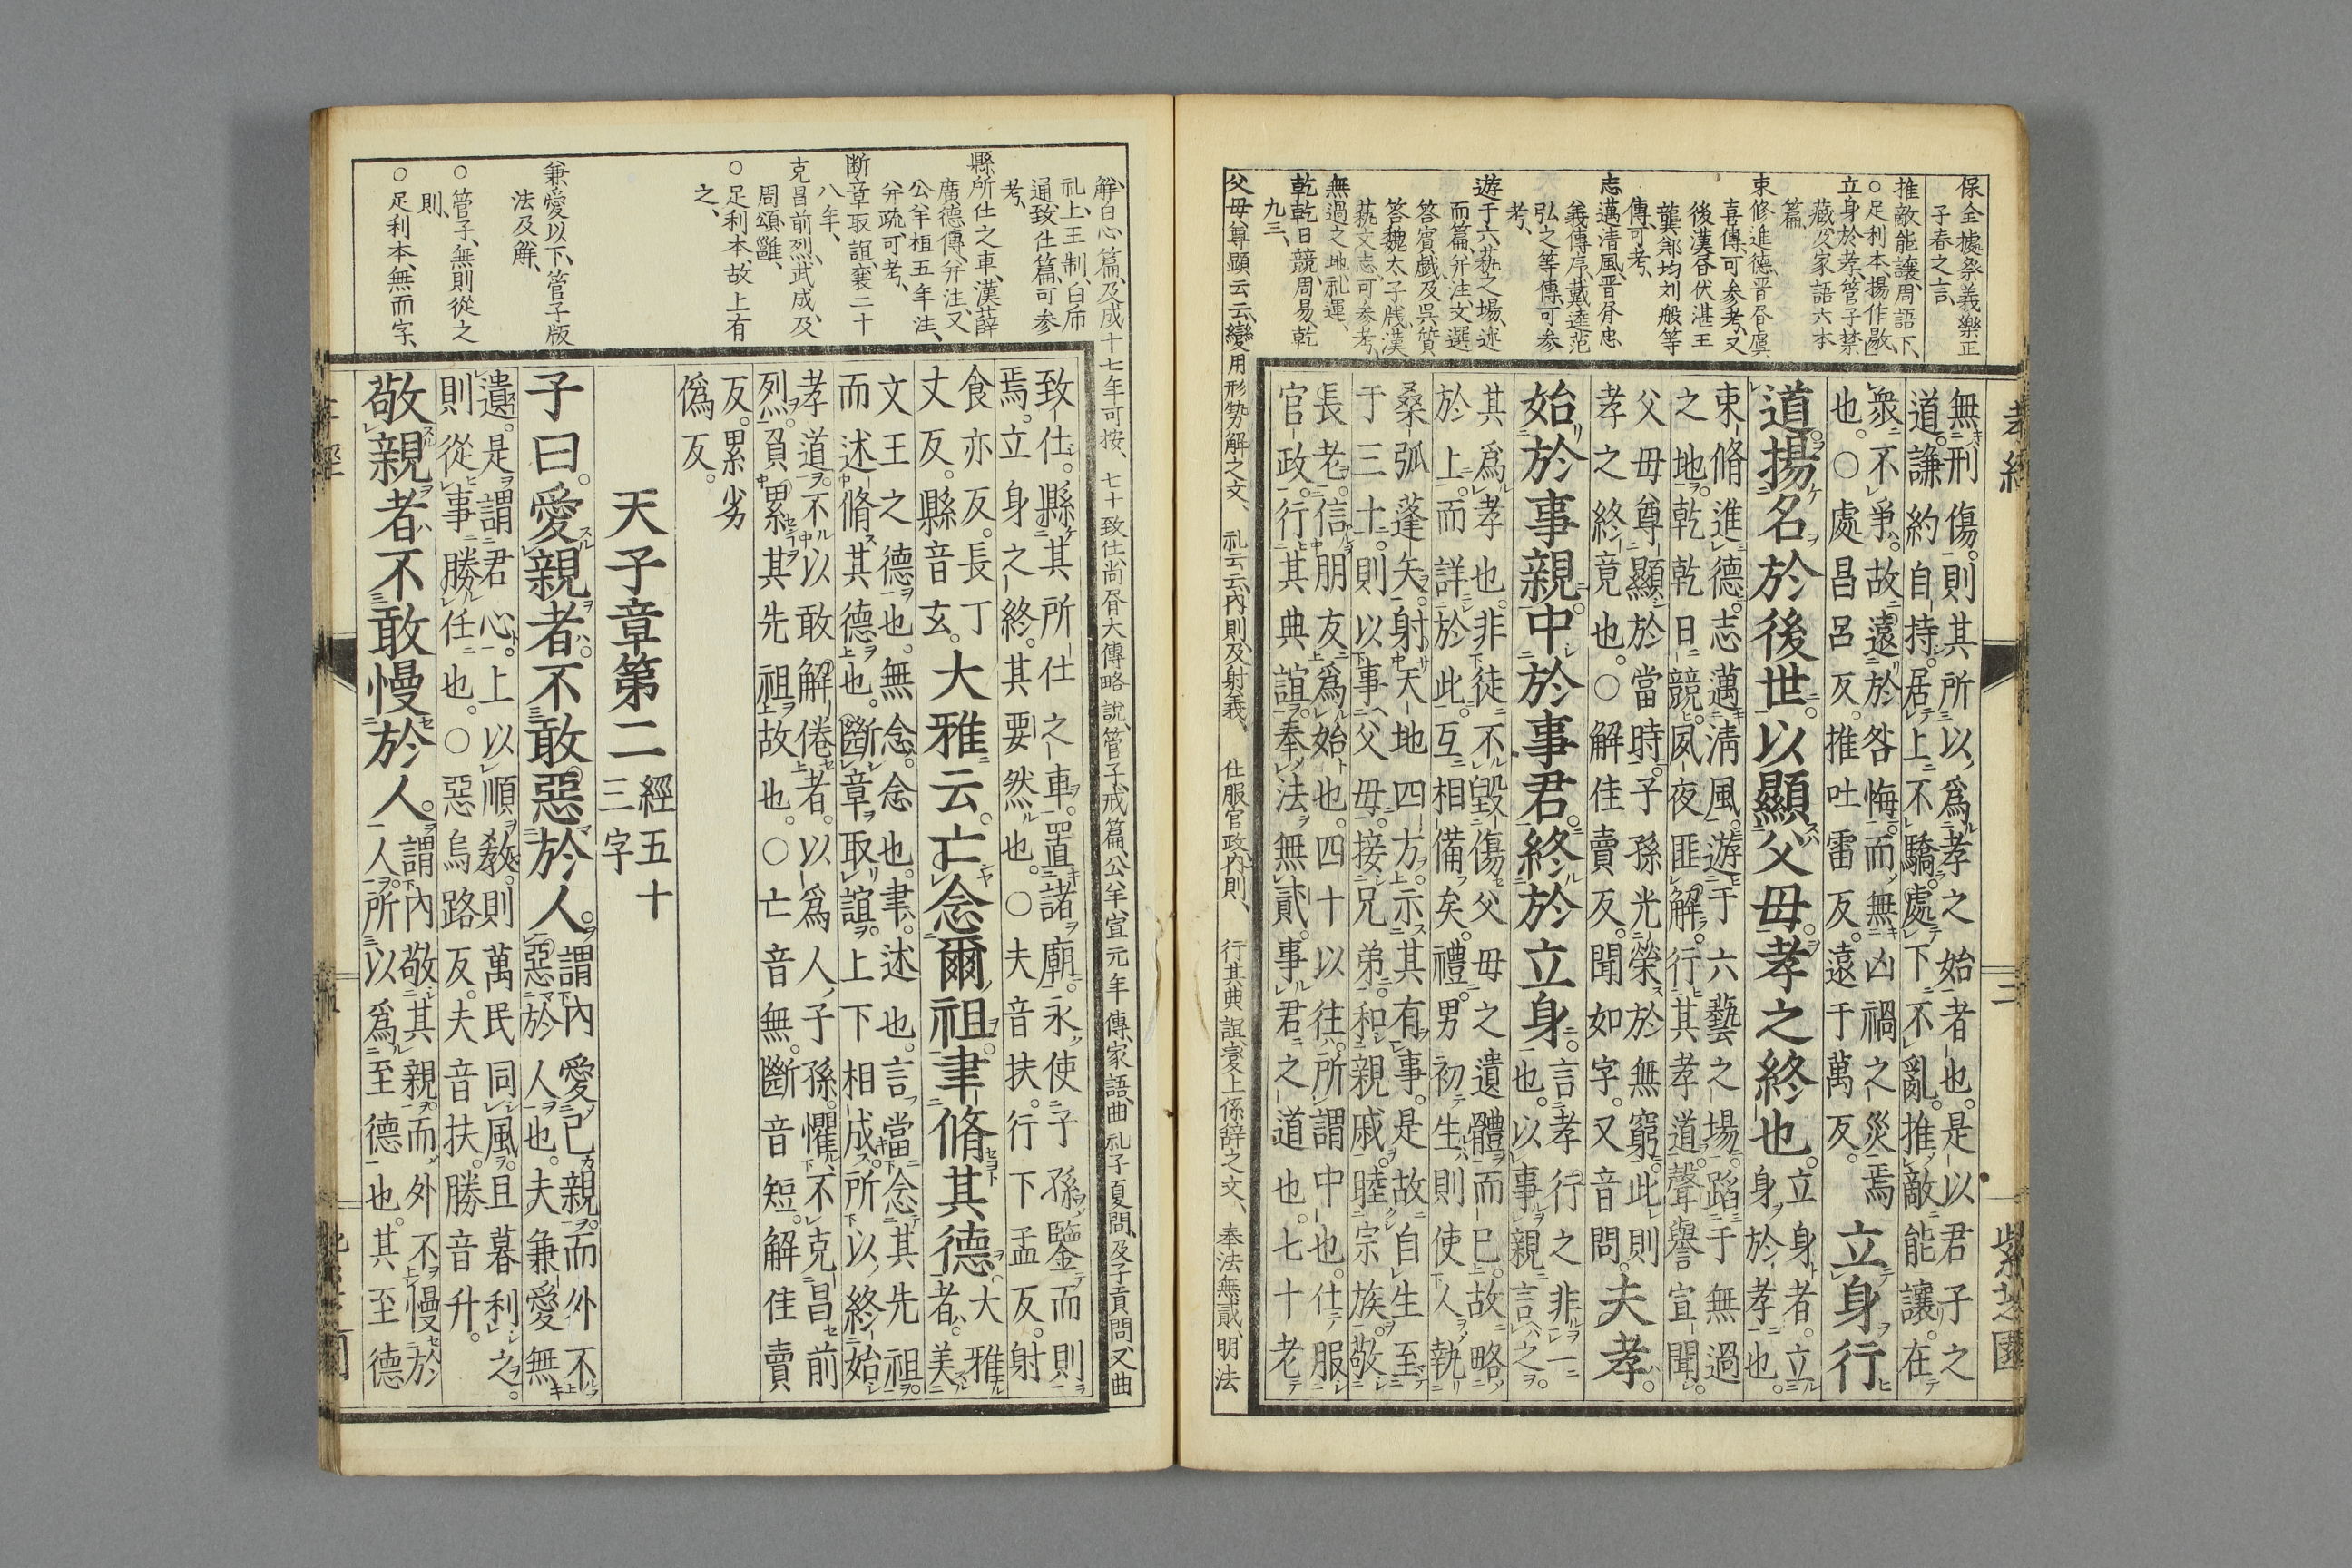 保全據祭義樂正
子春之言、
推敵能讓、周語下、
○足利本、揚作敭、
立身於孝、管子禁
藏、及家語六本
篇、
束修進德、晉書虞
喜傳、可參考、又
後漢書伏湛王
龔鄭均刘般等
傳、可考、
志邁清風、晉書忠
義傳序、戴逵范
弘之等傳、可參
考、
遊于六藝之場、述
而篇、并注、文選
答賓戲、及吳質
答魏太子牋、漢
藝文志、可参考、
無過之地、礼運、
乾乾日競、周易、乾
九三、
父母尊顯云云、變用形勢解之文、 礼云云、内則、及射義、 仕服官政、内則、 行其典誼、襄上係辞之文、 奉法無貳、明法
孝經
三
紫芝園
無刑傷。則其所以爲孝之始者也。是以君子之
道。謙約自持。居上不驕。處下不亂。推敵能讓。在
衆不爭。故遠於咎悔。而無凶禍之災焉
也。○處昌呂反。推吐雷反。遠于萬反。
立身行
道。揚名於後世。以顯父母。孝之終也。
立身者。立
身於孝也。
束脩進德。志邁清風。遊于六藝之場。蹈于無過
之地。乾乾日競。夙夜匪解。行其孝道。聲譽宣聞。
父母尊顯於當時。子孫光榮於無窮。此則
孝之終竟也。○解佳賣反。聞如字。又音問。
夫孝。
始於事親。中於事君。終於立身。
言孝行之非一
也。以事親言之。
其爲孝也。非徒不毀傷父母之遺體而已。故略
於上。而詳於此。互相備矣。禮。男初生。則使人執
桑弧蓬矢。射天地四方。示其有事。是故自生至
于三十。則以事父母。接兄弟。和親戚。睦宗族。敬
長老。信朋友爲始也。四十以往。所謂中也。仕服
官政。行其典誼。奉法無貳。事君之道也。七十老
解、白心、篇、及成十七年可按、 七十致仕、尚書大傳略說、管子戒篇、公羊、宣元年傳、家語、曲礼子夏問、及子貢問、又曲
礼上、王制、白虎
通、致仕篇、可参
考、
縣所仕之車、漢薛
廣德傳、并注、又
公羊桓五年注、
并疏、可考、
断章取誼、襄二十
八年、
克昌前烈、武成、及
周頌雝、
○足利本、故上有
之、
兼愛以下、管子版
法及解、
○管子、無則從之
則、
○足利本、無而字、
致仕。縣其所仕之車。置諸廟。永使子孫鑒而則
焉。立身之終。其要然也。○夫音扶。行下孟反。射
食亦反。長丁
丈反。縣音玄。
大雅云。亡念爾祖。聿脩其德。
大雅
者。美
文王之德也。無念。念也。聿。述也。言當念其先祖。
而述脩其德也。斷章取誼。上下相成。所以終始
孝道。不以敢解倦者。以爲人子孫。懼不克昌前
烈。負累其先祖故也。○亡音無。斷音短。解佳賣
反。累劣
僞反。
天子章第二
經五十
三字
子曰。愛親者。不敢惡於人。
謂內愛己親。而外不
惡於人也。夫兼愛無
遺。是謂君心。上以順教。則萬民同風。且暮利之。
則從事勝任也。○惡烏路反。夫音扶。勝音升。
敬親者不敢慢於人。
謂內敬其親。而外不慢於
人。所以爲至德也。其至德